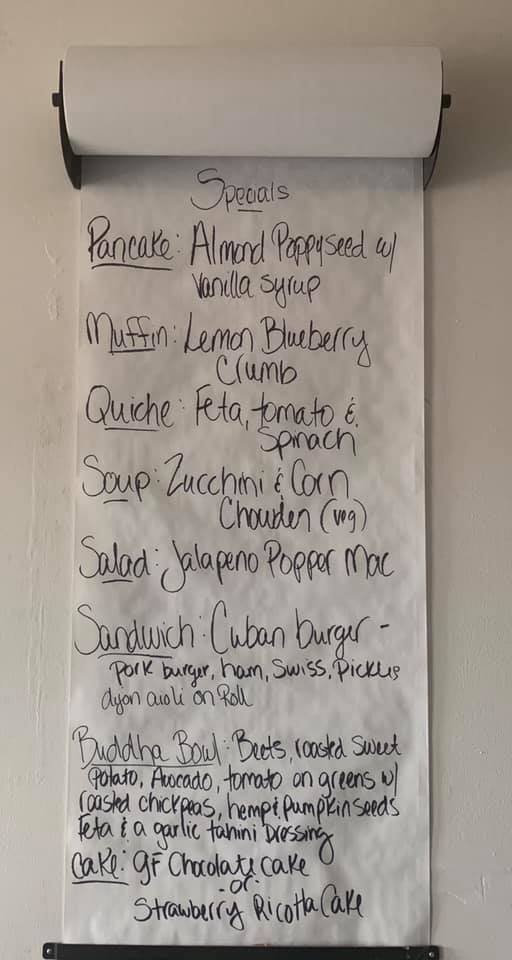 Specials
Pancake: Almond Poppyseed w/
Vanilla Syrup
Muffin: Lemon Blueberry
Crumb
Quiche: Feta, tomato &
Spinach
Soup: Zucchini & Corn
Chowder (veg)
Salad: Jalapeno Popper Mac
Sandwich: Cuban burger -
pork burger, ham, Swiss, Pickles
dijon aioli on Roll
Buddha Bowl: Beets, roasted Sweet
Potato, Avocado, tomato on greens w/
roasted chickpeas, hemp & pumpkin seeds
feta & a garlic tahini Dressing
Cake: GF Chocolate Cake
-or-
Strawberry Ricotta Cake